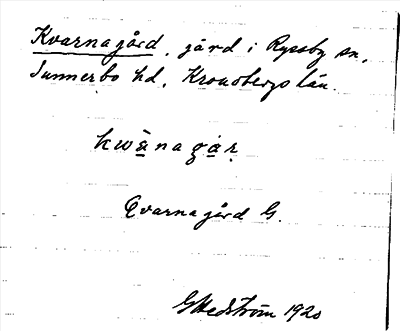 Kvarnagård, gård i Ryssby sn,
Sunnerbo hd, Kronobergs län.
kwànagår
Qvarnagård G.
GHedström 1920